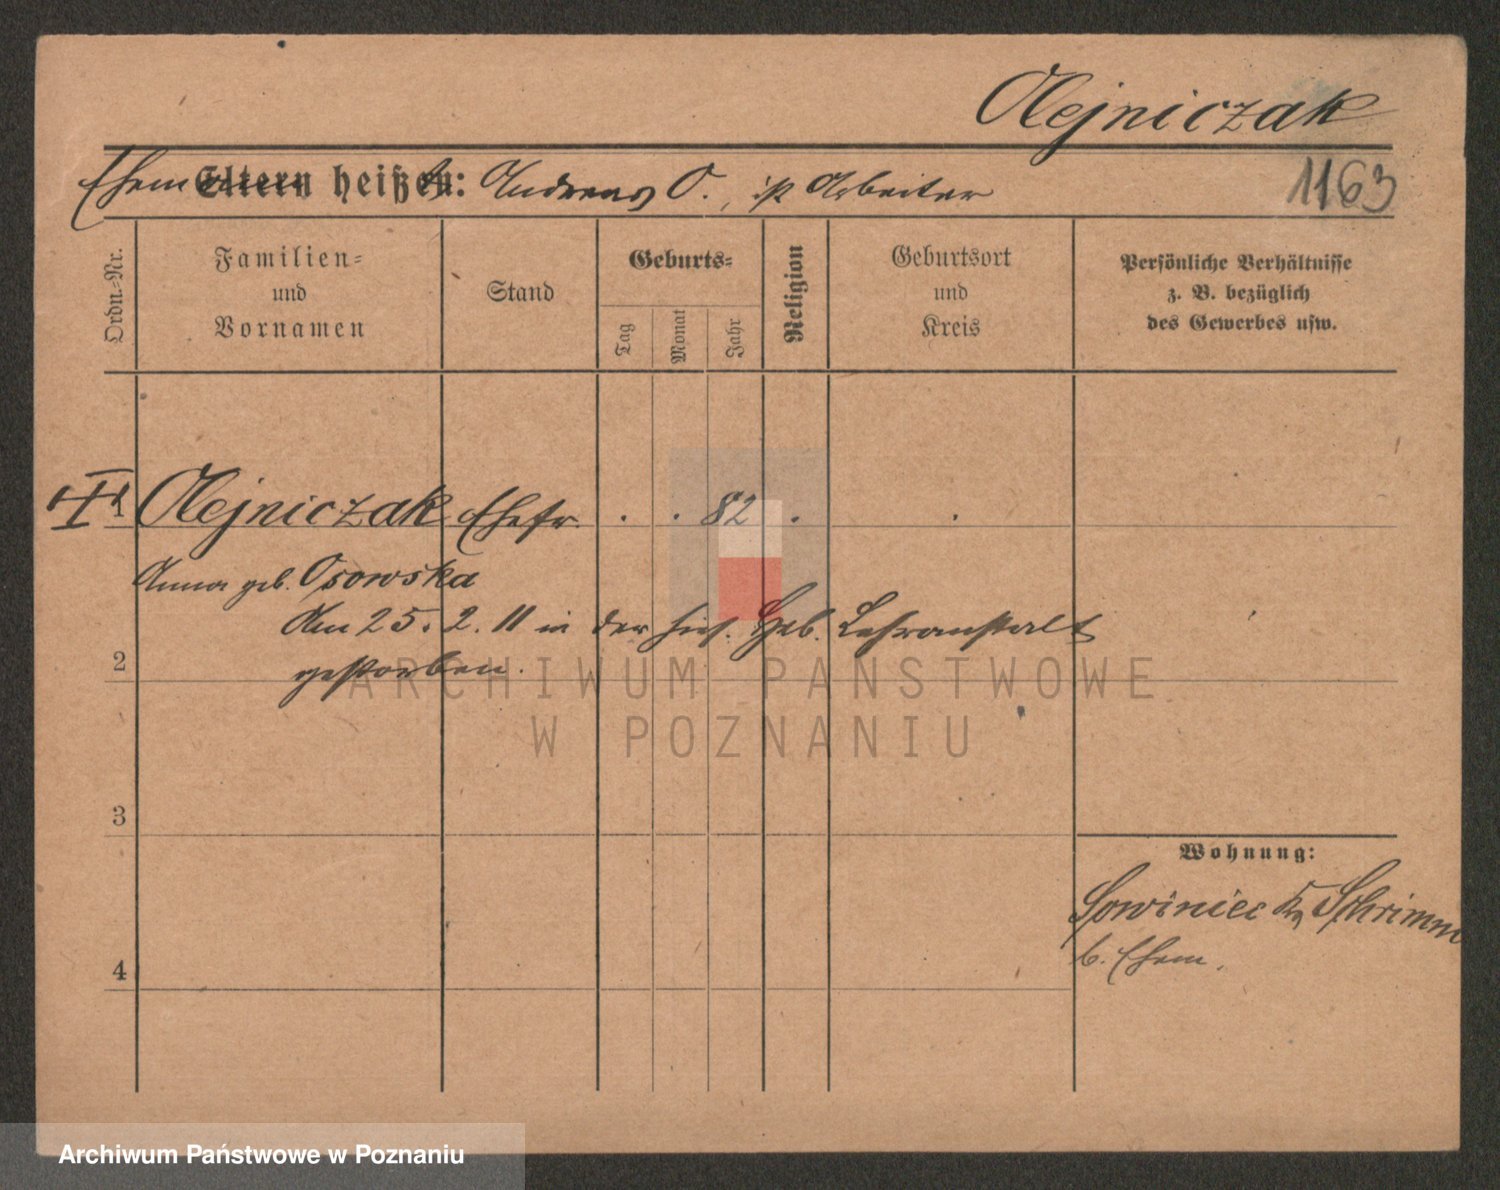 Olejniczak
Ehem Eltern heißen: Andreas O., ist Arbeiter
1163
Ordn.-Nr.
Familien-
und
Vornamen
Stand
Geburts-
Tag
Monat
Jahr
Religion
Geburtsort
und
Kreis
Persönliche Verhältnisse
z. B. bezüglich
des Gewerbes usw.
1 Olejniczak Ehefr. . . 82 . .
Anna geb. Osowska
Am 25. 2. 11 in der hies. Heb. Lehranstalt
gestorben.
2
3
4
Wohnung:
Sowiniec Krs Schrimm
b. Ehem.
ARCHIWUM PAŃSTWOWE
W POZNANIU
Archiwum Państwowe w Poznaniu